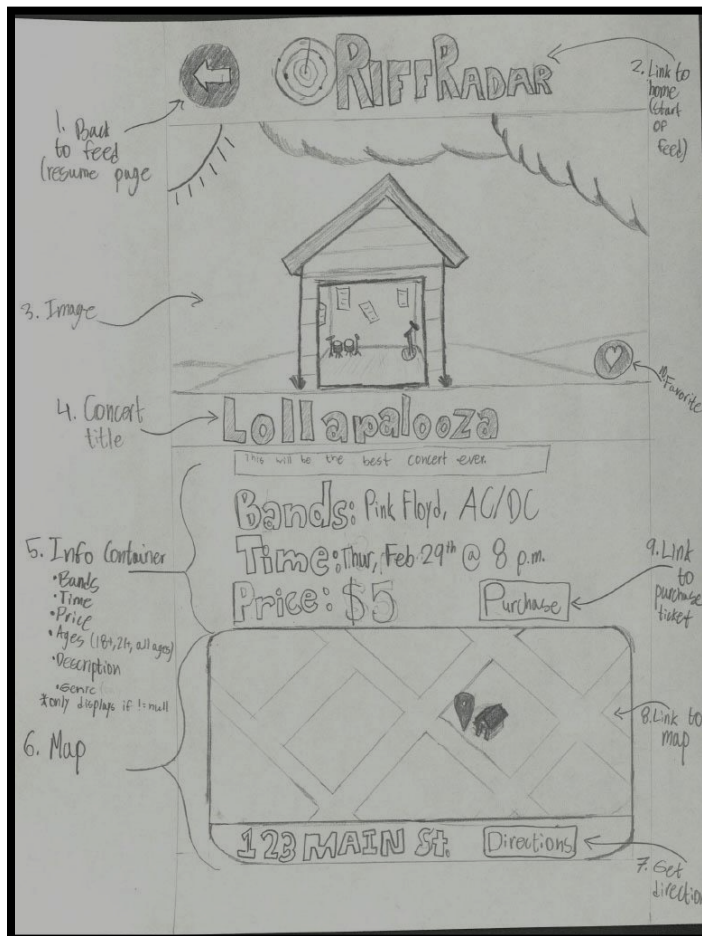 RIFFRADAR
2. Link to
home
(start
of
feed)
1. Back
to feed
(resume page
3. Image
10. Favorite
4. Concert
title
Lollapalooza
This will be the best concert ever.
Bands: Pink Floyd, AC/DC
Time: Thur, Feb 29th @ 8 p.m.
Price: $5
Purchase
5. Info Container
•Bands
•Time
•Price
•Ages (18+, 21+, all ages)
•Description
•Genre
*only displays if != null
9. Link
to
purchase
ticket
6. Map
8. Link to
map
123 MAIN St.
Directions
7. Get
direction